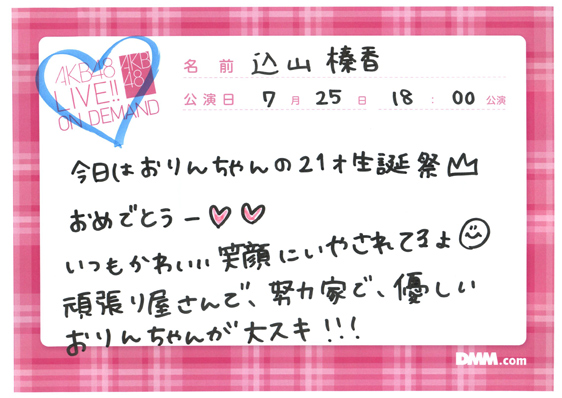 AKB48
LIVE!!
ON DEMAND
AKB
48
名前 込山榛香
公演日 7月25日 18:00公演
今日はおりんちゃんの21才生誕祭
おめでとうー
いつもかわいい笑顔にいやされてるよ
頑張り屋さんで、努力家で、優しい
おりんちゃんが大スキ!!!
DMM.com